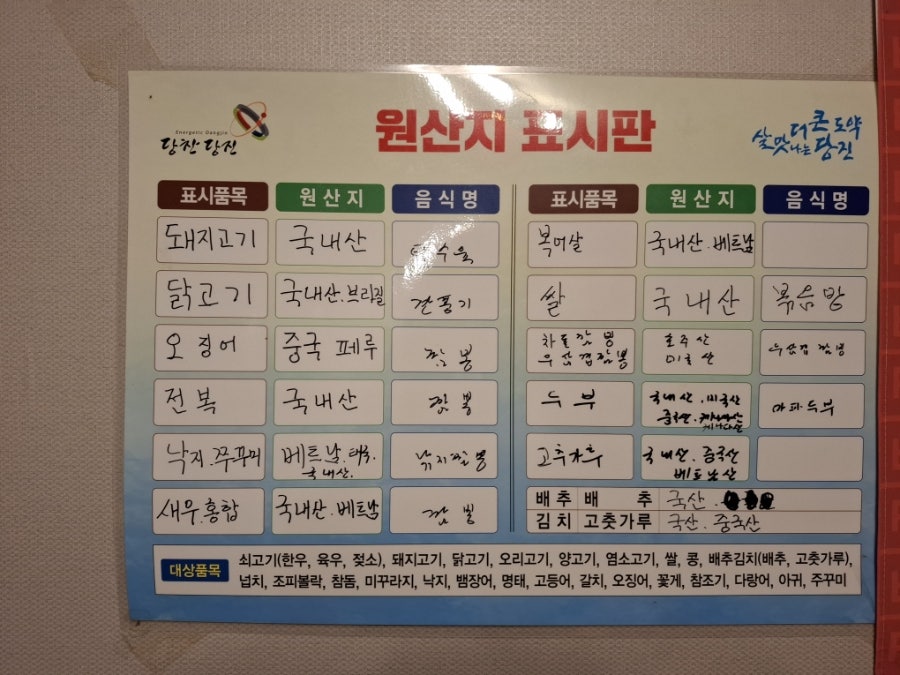 Energetic Dangjin
당찬 당진
원산지 표시판
더 큰 도약
살맛나는 당진
표시품목 원산지 음식명
돼지고기 국내산 탕수육
닭고기 국내산.브라질 깐풍기
오징어 중국 페루 짬뽕
전복 국내산 짬뽕
낙지.쭈꾸미 베트남.태국.
국내산. 낙지짬뽕
새우.홍합 국내산.베트남 짬뽕
표시품목 원산지 음식명
복어살 국내산.베트남
쌀 국내산 볶음밥
차돌짬뽕 호주산
우삼겹짬뽕 미국산 우삼겹짬뽕
두부 국내산.미국산
중국산. 캐나다산 마파두부
고추가루 국내산.중국산
베트남산
배추 배추 국산.
김치 고춧가루 국산.중국산
대상품목
쇠고기(한우, 육우, 젖소), 돼지고기, 닭고기, 오리고기, 양고기, 염소고기, 쌀, 콩, 배추김치(배추, 고춧가루),
넙치, 조피볼락, 참돔, 미꾸라지, 낙지, 뱀장어, 명태, 고등어, 갈치, 오징어, 꽃게, 참조기, 다랑어, 아귀, 주꾸미